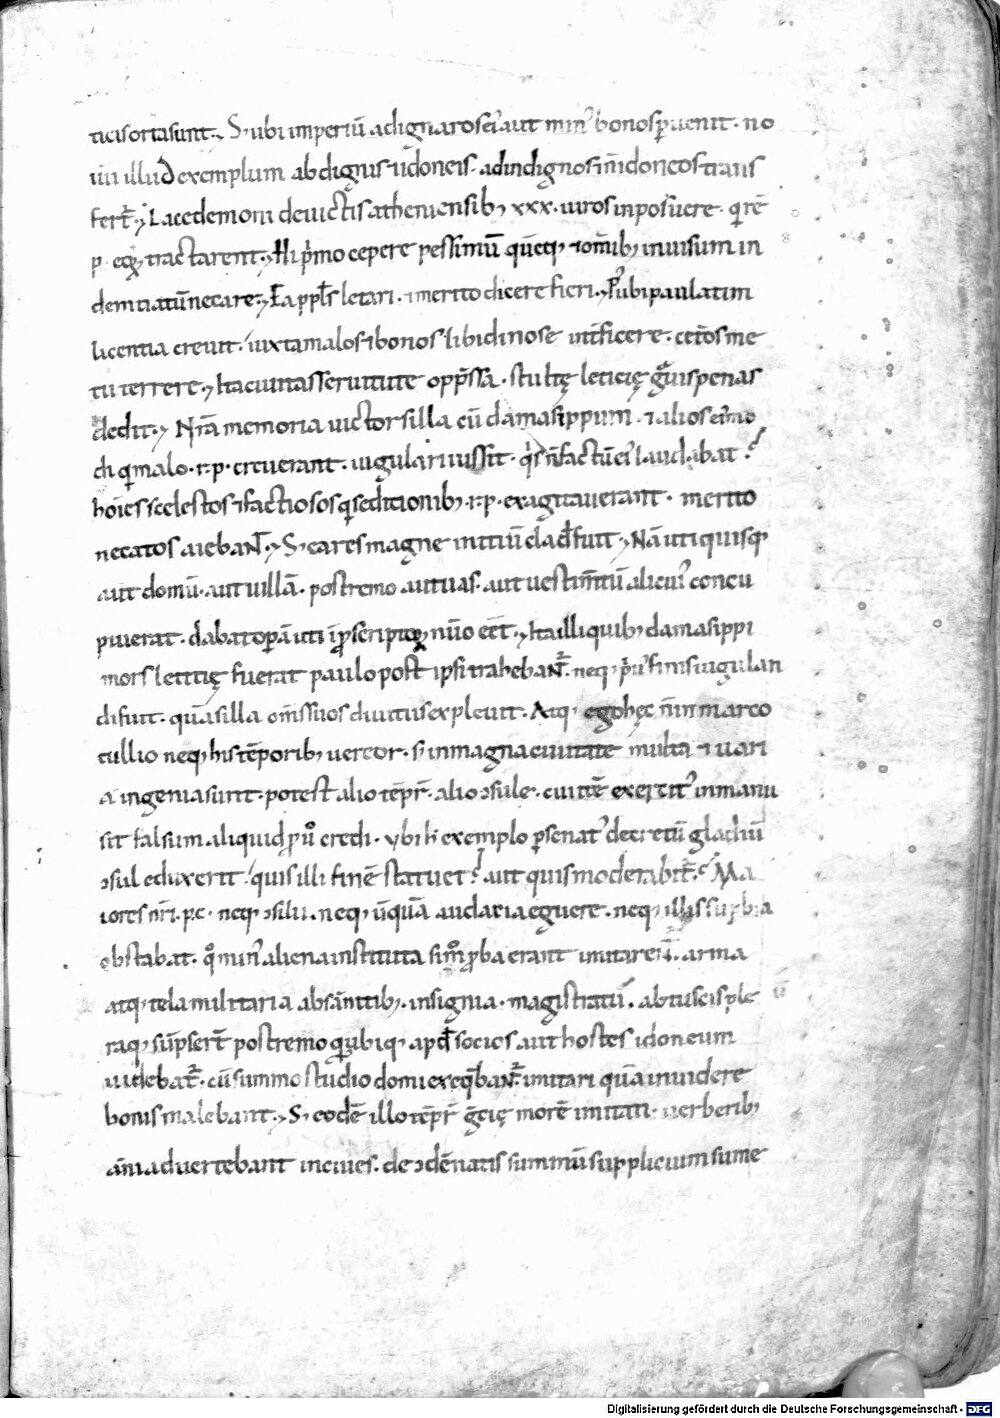 ticis orta sunt. S; ubi imperiū ad ignaros eiꝰ aut minꝰ bonos ꝑuenit. no
uū illud exemplum ab dignis ⁊ idoneis. ad indignos ⁊ n̄ idoneos trans
fert̄. Lacedemoni deuictis atheniensib; xxx. uiros inposuere. qi rē
p. eoꝝ tractarent. Hi p̍mo cepere pessimū quēq; ⁊ om̄ib; inuisum in
demnatū necare. Ea ppl̄s letari. ⁊ merito dicere fieri. P̄ ubi paulatim
licentia creuit. iuxta malos ⁊ bonos libidinose int̄ficere. cet̄os me
tu terrere. Ita ciuitas seruitute opp̄ssa. stultę leticię gͣuis penas
dedit. Nr̄a memoria uictor silla cū damasippum. ⁊ alios eiꝰmo
di qi malo .r.p. creuerant. iugulari iussit. qis n̄ factū eiꝰ laudabat?
hoīes scelestos ⁊ factiosos qi seditionib; .r.p. exagitauerant. merito
necatos aiebant̄. S; ea res magne initiū cladis fuit. Nā uti quisq;
aut domū. aut uillā. postremo aut uas. aut uestim̄tū alicuiꝰ concu
piuerat. dabat operā uti is ꝓscriptoꝝ nūo eēt. Ita illi quib; damasippi
mors letitię fuerat paulo post ipsi trahebant̄. neq; p̍us finis iugulan
di fuit. quā silla om̄s suos diuitiis expleuit. Atq; ego hęc n̄ in marco
tullio neq; his tēporib; uereor. s; in magna ciuitate multa ⁊ uari
a ingenia sunt. potest alio tēpr̄. alio ↄsule. cui itē exercitꝰ in manu
sit falsum aliquid ꝓ uͦ credi. Vbi h̄ exemplo ꝑ senatꝰ decretū gladiū
ↄsul eduxerit. quis illi finē statuet? aut quis moderabit̄? Ma
iores nr̄i .p.c. neq; ↄsilii. neq; ūquā audacia eguere. neq; illis supbia
obstabat. qͦ minꝰ aliena instituta si mͦ ꝓba erant imitarent̄. arma
atq; tela militaria ab sānitib;. insignia. magistratū. ab tuscis ple
raq; sūpsert̄ postremo qd ubiq; apd̄ socios aut hostes idoneum
uidebat̄. cū summo studio domi exeq̄bant̄. imitari quā inuidere
bonis malebant. S; eodē illo tēpr̄ gͣcię morē imitati. uerberib;
animaduertebant in ciues. de ↄdēnatis summū supplicium sume
Digitalisierung gefördert durch die Deutsche Forschungsgemeinschaft - DFG